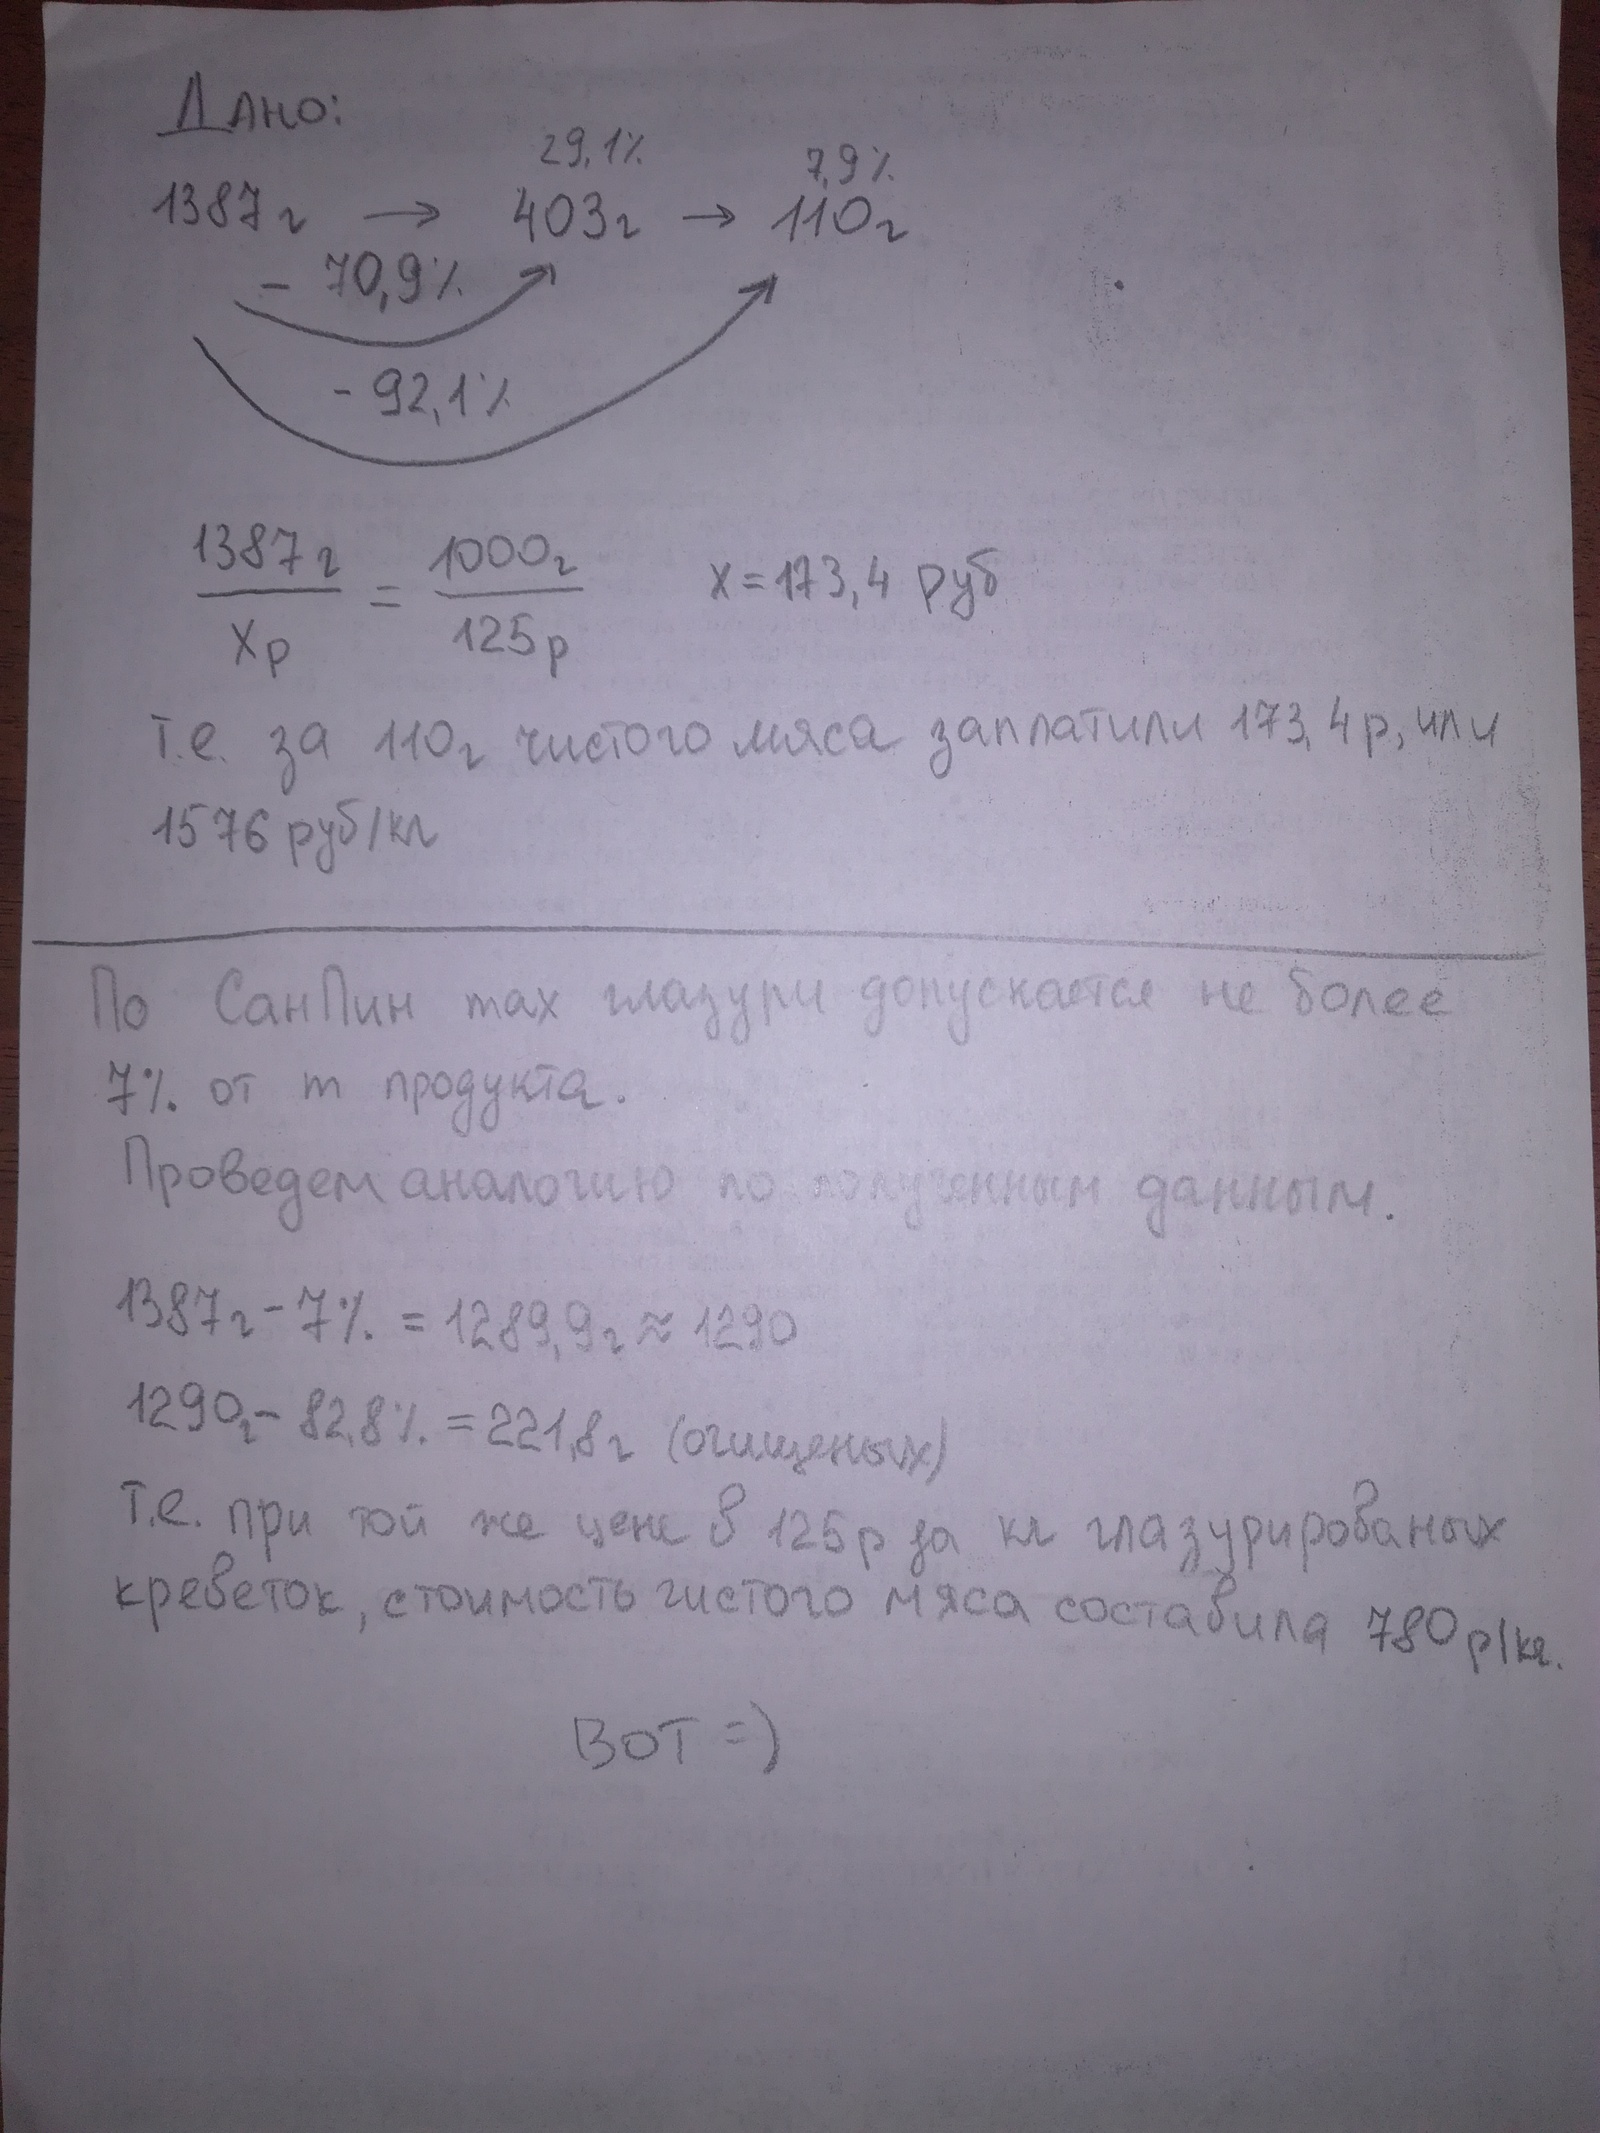 Дано:
29,1% 7,9%
1387г → 403г → 110г
- 70,9%
- 92,1%
1387г / Xр = 1000г / 125р X=173,4 руб
т.е. за 110г чистого мяса заплатили 173,4р, или
1576 руб/кг
По СанПин max глазури допускается не более
7% от m продукта.
Проведем аналогию по полученным данным.
1387г - 7% = 1289,9г ≈ 1290
1290г - 82,8% = 221,8г (очищеных)
т.е. при той же цене в 125р за кг глазурированых
креветок, стоимость чистого мяса составила 780р/кг.
ВОТ =)